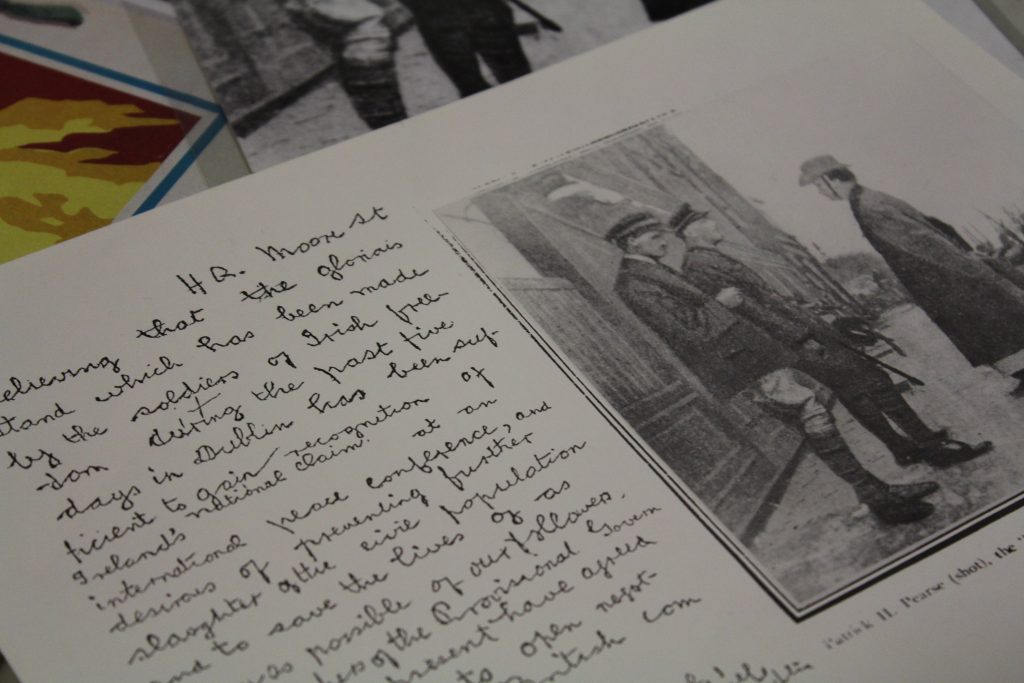 HQ. Moore St
elieving that the glorious
stand which has been made
by the soldiers of Irish free-
dom during the past five
days in Dublin has been suf-
ficient to gain recognition of
Ireland's national claim at an
international peace conference, and
desirous of preventing further
slaughter of the civil population
and to save the lives of as
as possible of our followers,
bers of the Provisional Govern
present have agreed
to open negot-
British com
Patrick H. Pearse (shot), the "